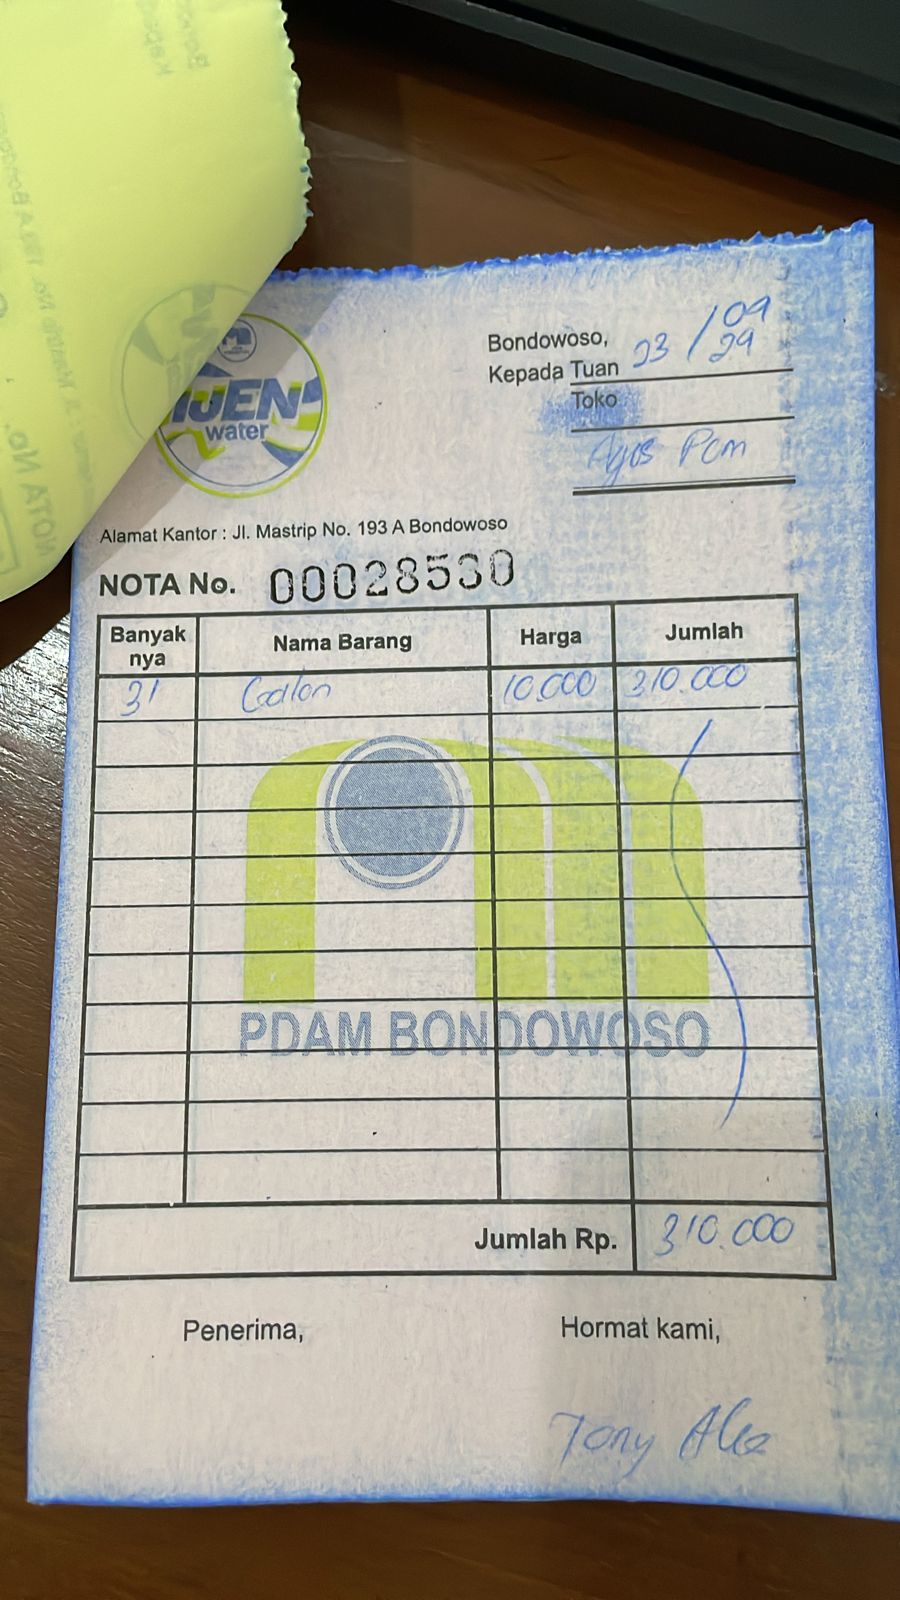 IJEN
water
Bondowoso, 23 / 09
29
Kepada Tuan
Toko
Agus Pcm
Alamat Kantor : Jl. Mastrip No. 193 A Bondowoso
NOTA No. 00028530
Banyak nya Nama Barang Harga Jumlah
31 Galon 10.000 310.000
PDAM BONDOWOSO
Jumlah Rp. 310.000
Penerima, Hormat kami,
Tony